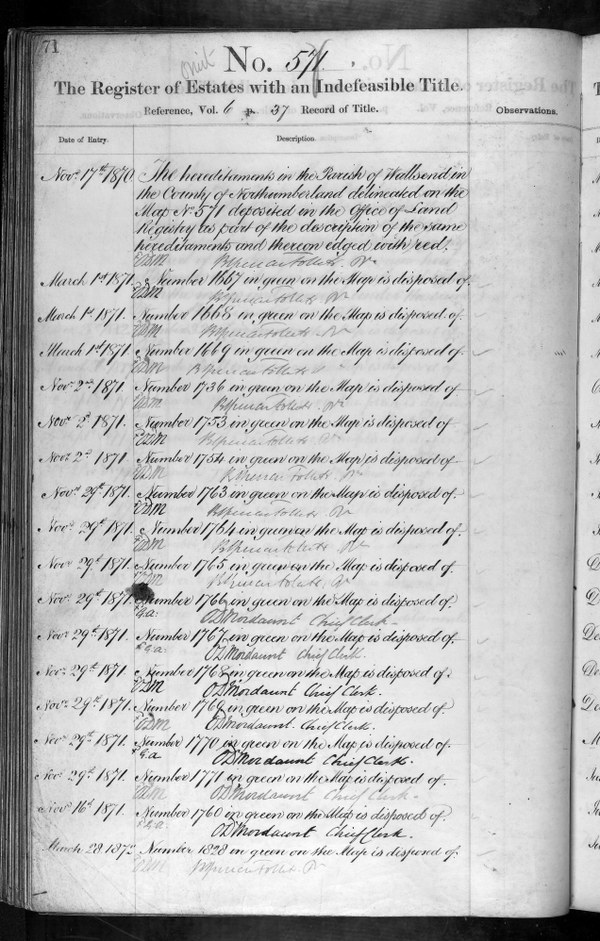 71
omit
No. 571.
The Register of Estates with an Indefeasible Title.
Reference, Vol. 6 p. 37 Record of Title.
Observations.
Date of Entry.
Description.
Novr. 17th 1870. The hereditaments in the Parish of Wallsend in
the County of Northumberland delineated on the
Map No. 571 deposited in the Office of Land
Registry as part of the description of the same
hereditaments and thereon edged with red.
ODM
March 1st 1871. Number 1667 in green on the Map is disposed of.
ODM
March 1st 1871. Number 1668 in green on the Map is disposed of.
ODM
March 1st 1871. Number 1669 in green on the Map is disposed of.
ODM
Novr. 2nd 1871. Number 1736 in green on the Map is disposed of.
ODM
Novr. 2d 1871. Number 1753 in green on the Map is disposed of.
ODM
Novr. 2d 1871. Number 1754 in green on the Map is disposed of.
ODM
Novr. 29th 1871. Number 1763 in green on the Map is disposed of.
ODM
Novr. 29th 1871. Number 1764 in green on the Map is disposed of.
ODM
Novr. 29th 1871. Number 1765 in green on the Map is disposed of.
ODM
Novr. 29th 1871. Number 1766 in green on the Map is disposed of.
ODMordaunt Chief Clerk.
Novr. 29th 1871. Number 1767 in green on the Map is disposed of.
ODMordaunt Chief Clerk.
Novr. 29th 1871. Number 1768 in green on the Map is disposed of.
ODM ODMordaunt Chief Clerk.
Novr. 29th 1871. Number 1769 in green on the Map is disposed of.
ODM ODMordaunt. Chief Clerk.
Novr. 29th 1871. Number 1770 in green on the Map is disposed of.
ODMordaunt Chief Clerk.
Novr. 29th 1871. Number 1771 in green on the Map is disposed of.
ODM ODMordaunt Chief Clerk.
Novr. 16th 1871. Number 1760 in green on the Map is disposed of.
ODMordaunt Chief Clerk.
March 28 1872 Number 1828 in green on the Map is disposed of.
ODM